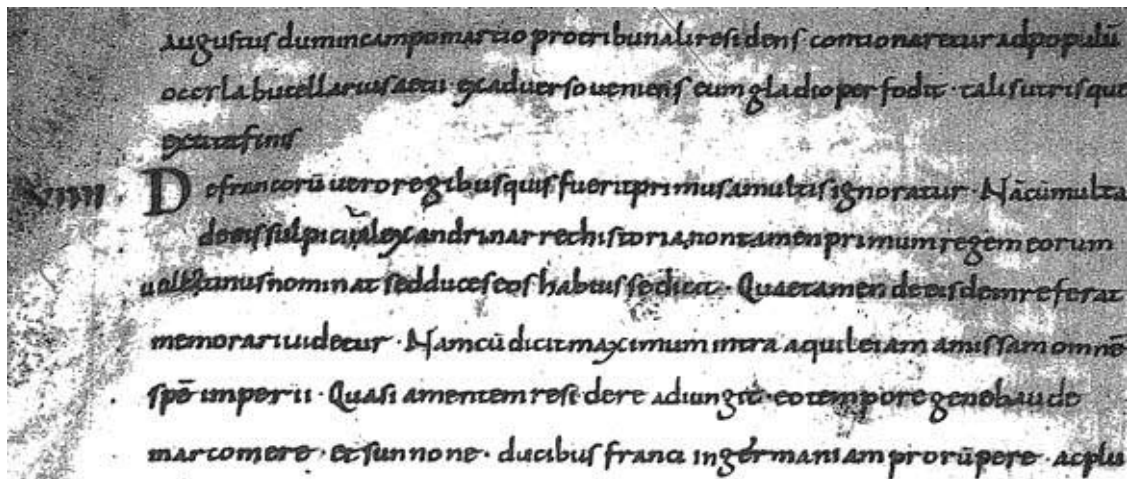 augustus dum in campo martio pro tribunali residens contionaretur ad populū
occila bucellarius aetii ex adverso veniens eum gladio perfodit · talis utrisque
extitit finis
VIIII · De francorū vero regibus quis fuerit primus a multis ignoratur · Nā cū multa
de eis sulpicii alexandri narret historia, non tamen primum regem eorum
valentinus nominat sed duces eos habuisse dicit · Quae tamen de eisdem referat
memorari videtur · Nam cū dicit maximum intra aquileiam amissam omnē
spē imperii · Quasi amentem residere adiungit · eo tempore genobaude
marcomere · et sunnone · ducibus franci in germaniam prorūpere · ac plu